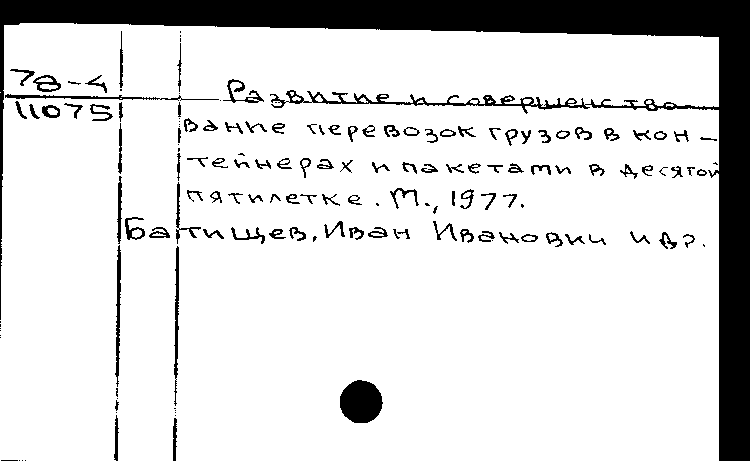 78-4
11075
Развитие и совершенство-
вание перевозок грузов в кон-
тейнерах и пакетами в десятой
пятилетке. М., 1977.
Батищев, Иван Иванович и др.